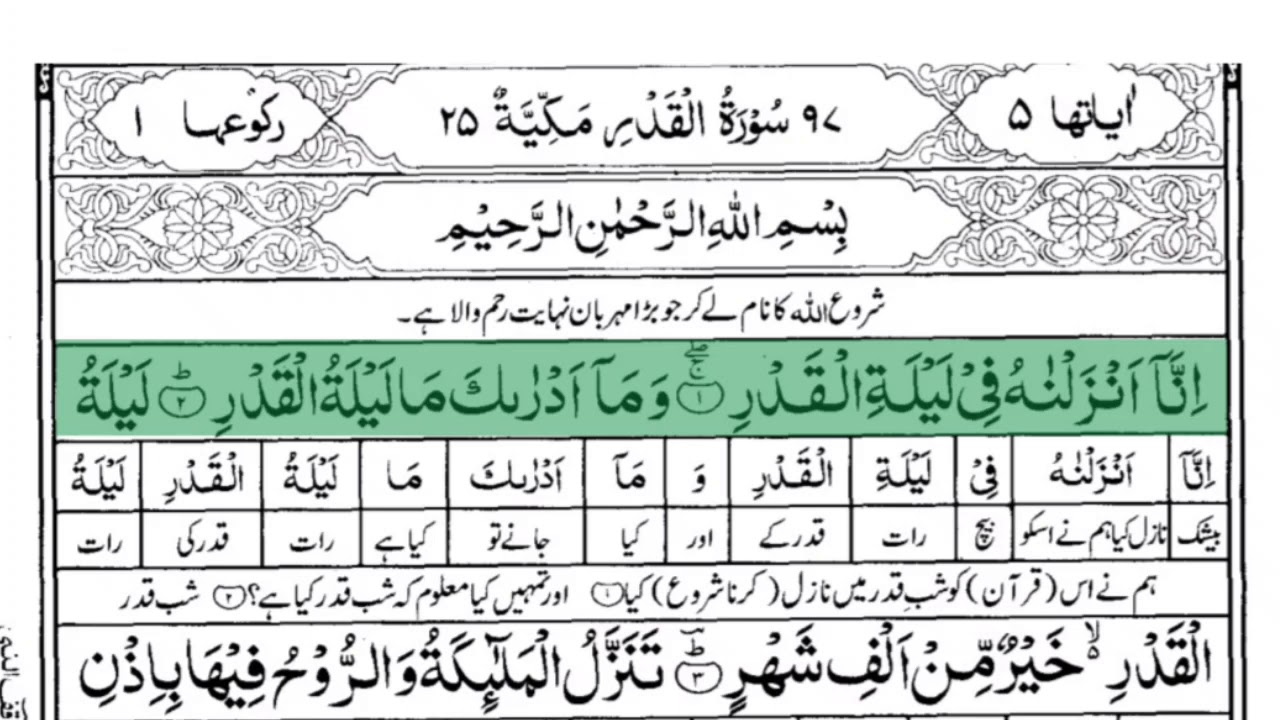 اٰياتها ۵ ۹۷ سُوْرَةُ الْقَدْرِ مَكِّيَّةٌ ۲۵ ركوعها ۱
بِسْمِ اللهِ الرَّحْمٰنِ الرَّحِيْمِ
شروع اللہ کا نام لے کر جو بڑا مہربان نہایت رحم والا ہے۔
اِنَّآ اَنْزَلْنٰهُ فِيْ لَيْلَةِ الْقَدْرِ ۝۱ وَمَآ اَدْرٰىكَ مَا لَيْلَةُ الْقَدْرِ ۝۲ لَيْلَةُ
اِنَّآ اَنْزَلْنٰهُ فِيْ لَيْلَةِ الْقَدْرِ وَ مَآ اَدْرٰىكَ مَا لَيْلَةُ الْقَدْرِ لَيْلَةُ
بیشک نازل کیا ہم نے اسکو بیچ رات قدر کے اور کیا جانے تو کیا ہے رات قدر کی رات
ہم نے اس (قرآن) کو شبِ قدر میں نازل (کرنا شروع) کیا ۝۱ اور تمہیں کیا معلوم کہ شب قدر کیا ہے؟ ۝۲ شب قدر
الْقَدْرِ ۙ خَيْرٌ مِّنْ اَلْفِ شَهْرٍ ۝۳ تَنَزَّلُ الْمَلٰٓئِكَةُ وَالرُّوْحُ فِيْهَا بِاِذْنِ